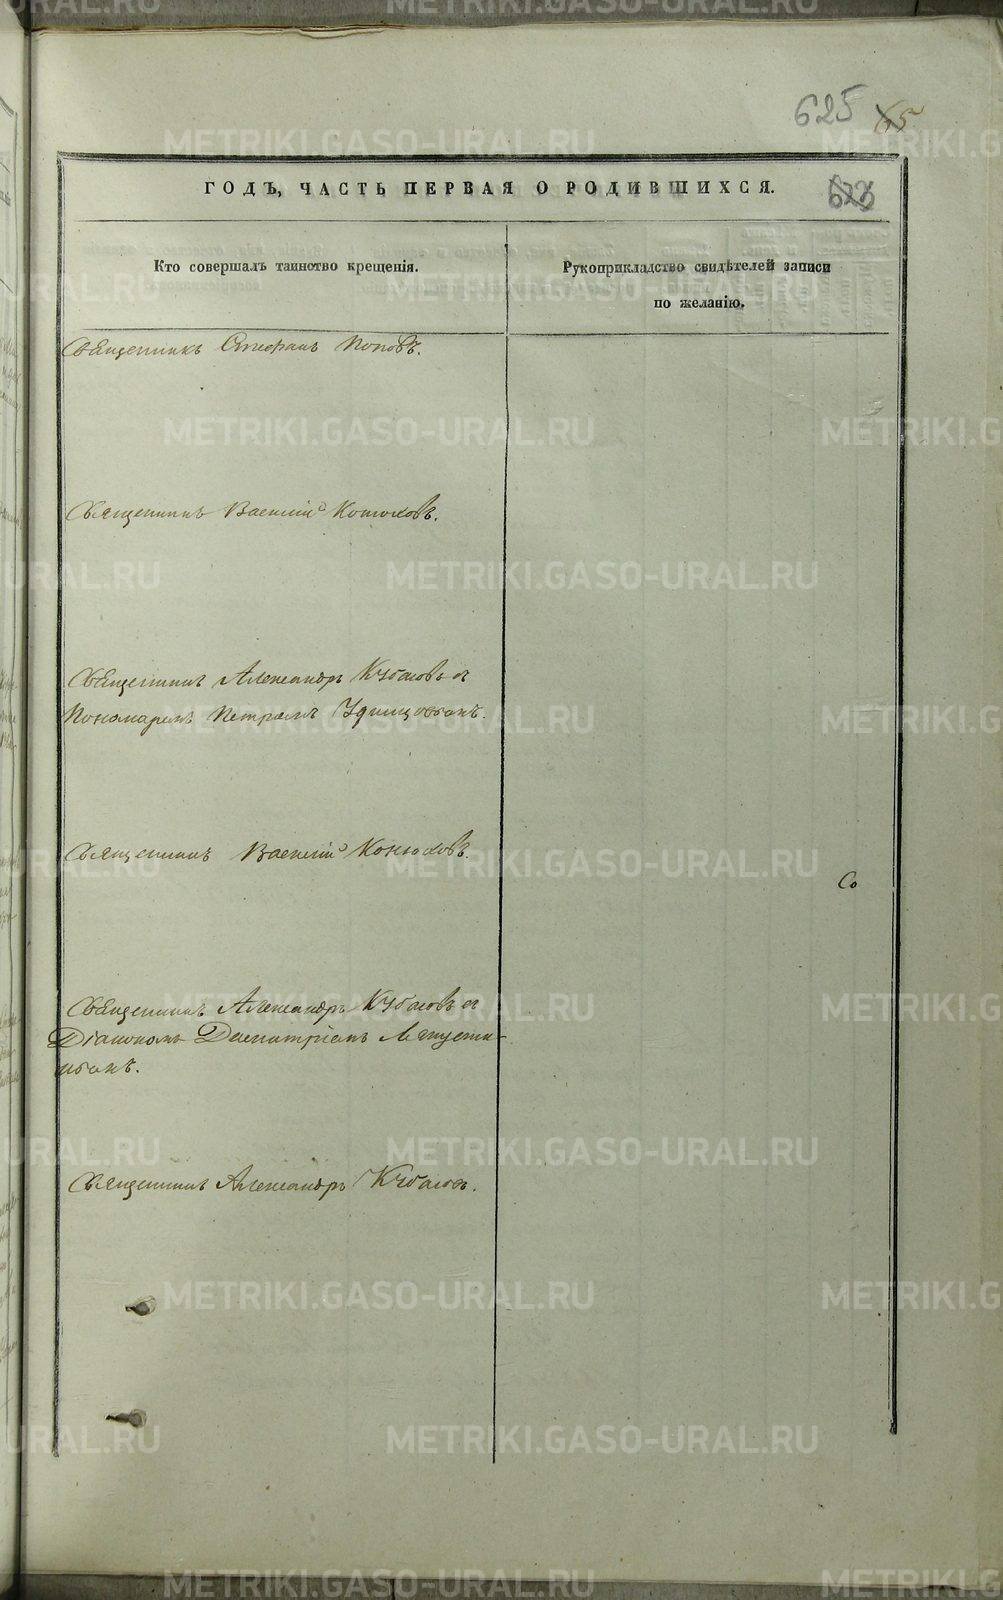 625 65
ГОДЪ, ЧАСТЬ ПЕРВАЯ О РОДИВШИХСЯ. 623
Кто совершалъ таинство крещенія.
Рукоприкладство свидѣтелей записи
по желанію.
Священникъ Стефанъ Поповъ.
Священникъ Василій Конюховъ.
Священникъ Александръ Кубасовъ съ
Пономаремъ Петромъ Удинцовымъ.
Священникъ Василій Конюховъ.
Со
Священникъ Александръ Кубасовъ съ
Діакономъ Димитріемъ
Священникъ Александръ Кубасовъ.
METRIKI.GASO-URAL.RU